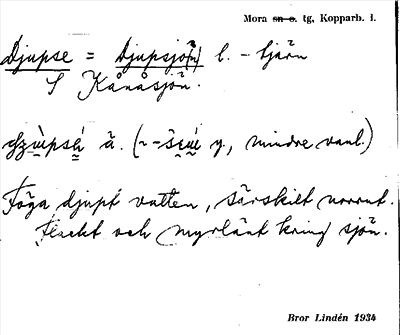 Mora sn o. tg, Kopparb. l.
Djupse = Djupsjö(n) l. - tjärn
S Kånåsjön.
ä. (~ - y, mindre vanl.)
Föga djupt vatten, särskilt norrut.
Flackt och myrlänt kring sjön.
Bror Lindén 1934